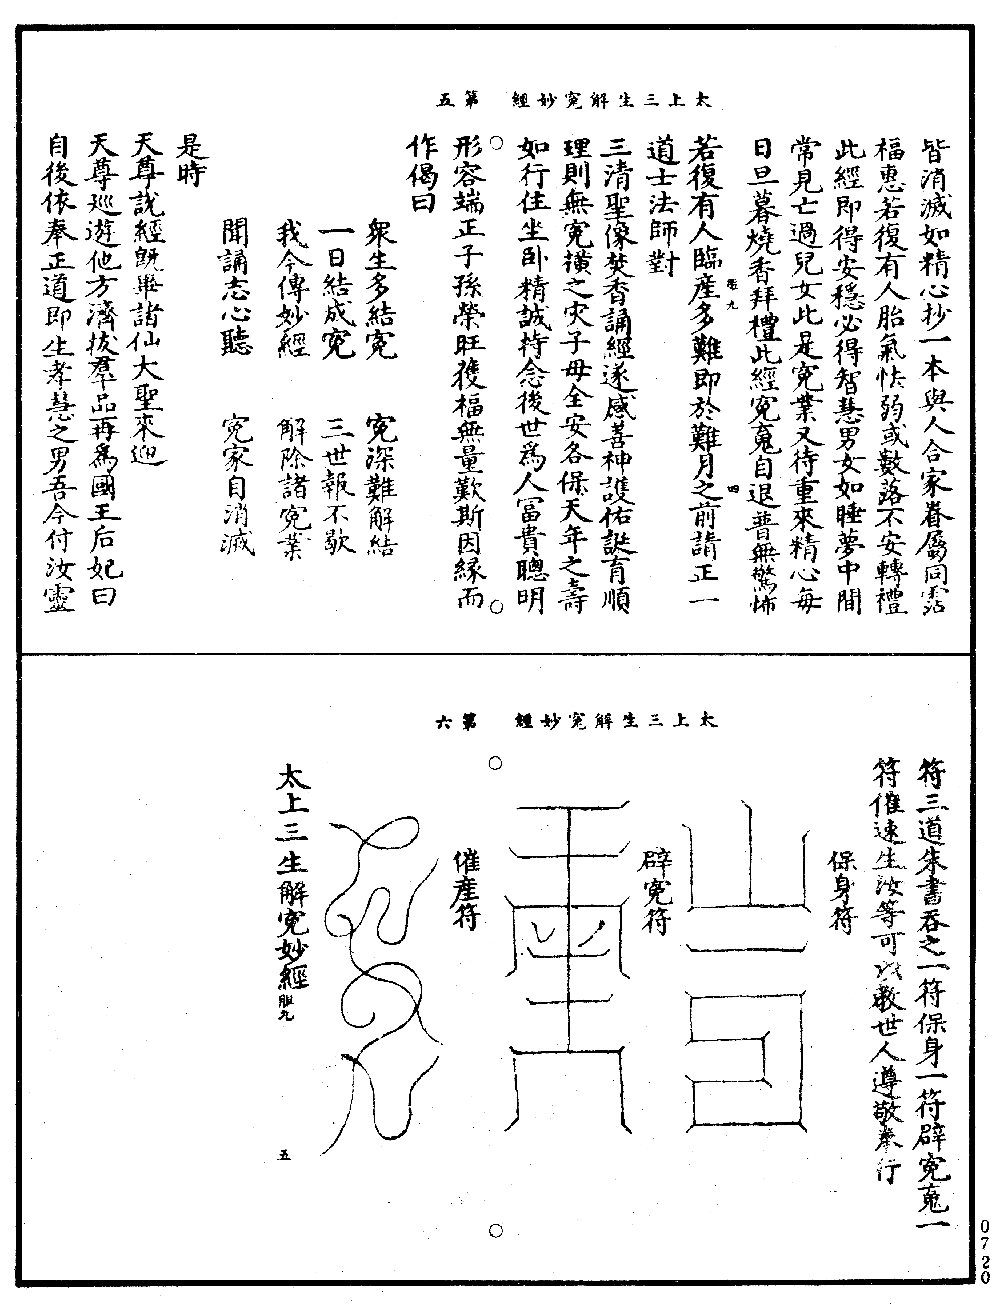 太上三生解冤妙經　第五
皆消滅如精心抄一本與人合家眷屬同霑
福惠若復有人胎氣怯弱或數落不安轉禮
此經即得安穩必得智慧男女如睡夢中間
常見亡過兒女此是冤業又待重來精心每
日旦暮燒香拜禮此經冤䰟自退普無驚怖
若復有人臨產多難即於難月之前請正一
九
四
道士法師對
三清聖像焚香誦經遂感善神護佑誕育順
理則無冤橫之灾子母全安各保天年之壽
如行住坐臥精誠持念後世爲人富貴聰明
形容端正子孫榮旺獲福無量歎斯因緣而
作偈曰
衆生多結冤　冤深難解結
一日結成冤　三世報不歇
我今傳妙經　解除諸冤業
聞誦志心聽　冤家自消滅
是時
天尊說經旣畢諸仙大聖來迎
天尊巡遊他方濟拔羣品再爲國王后妃曰
自後依奉正道即生孝慧之男吾今付汝靈
太上三生解冤妙經　第六
符三道朱書吞之一符保身一符辟冤䰟一
符催速生汝等可以救世人遵敬奉行
保身符
辟冤符
催產符
太上三生解冤妙經
九
五
0720